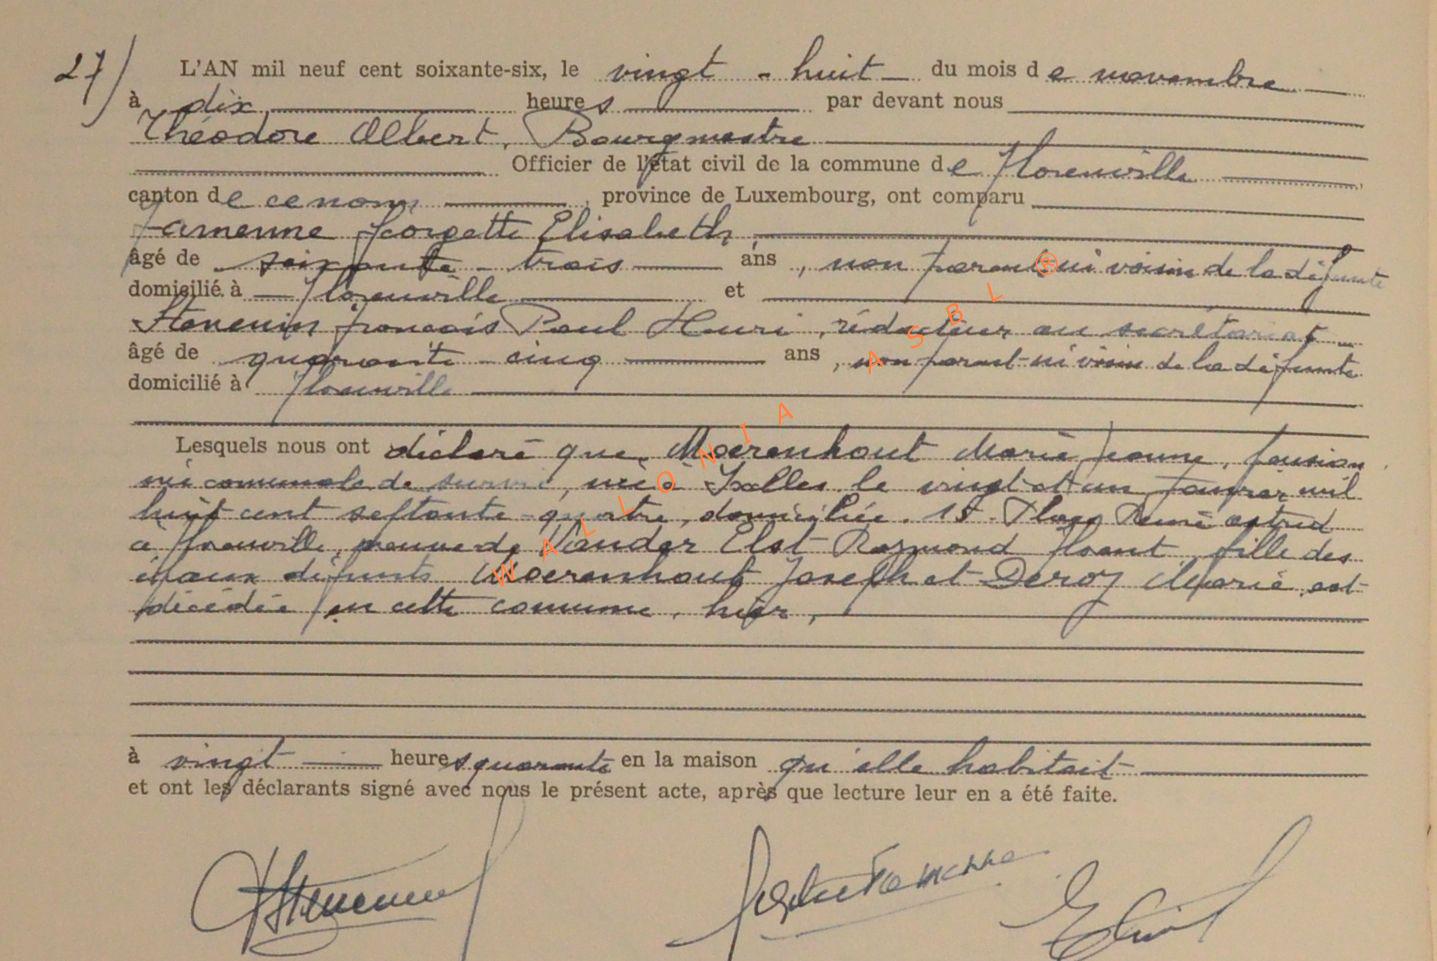 27) L'AN mil neuf cent soixante-six, le vingt - huit du mois de novembre
à dix heures par devant nous
Théodore Albert, Bourgmestre
Officier de l'état civil de la commune de Florenville
canton de ce nom, province de Luxembourg, ont comparu
Famenne Georgette Elisabeth,
âgé de soixante - trois ans, non parent ni voisin de la défunte
domicilié à Florenville et
Stevenin François Paul Henri, rédacteur au secrétariat
âgé de quarante cinq ans, non parent ni voisin de la défunte
domicilié à Florenville
Lesquels nous ont déclaré que, Moerenhout Marie Jeanne, pension
née communale de survie, née à Ixelles le vingt et un janvier mil
huit cent septante-quatre, domiciliée, 15 Place
à Florenville, veuve de Vander Elst Raymond, fille des
époux défunts Moerenhout Joseph et Deroy Marie, est
décédée en cette commune, hier,
à vingt heures quarante en la maison qu'elle habitait
et ont les déclarants signé avec nous le présent acte, après que lecture leur en a été faite.
WALLONIA ASBL ®